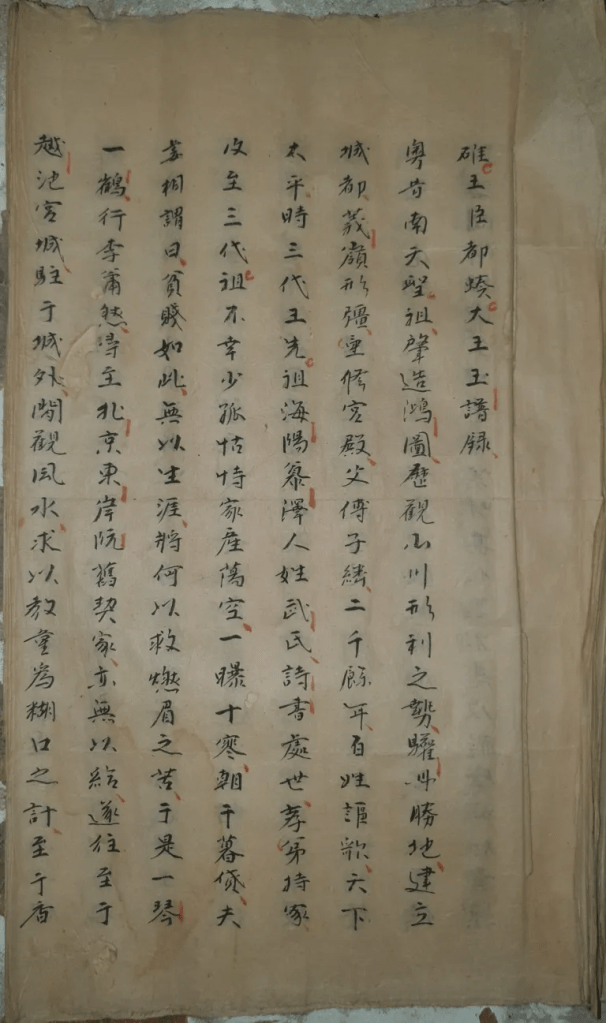 雄王臣都螃大王玉譜錄
奥昔南天聖祖肇造鴻圖歷觀山川形利之勢驩州勝地建立
城都羲嶺形彊重修宮殿父傳子繼二千餘年百姓謳歌天下
太平時三代王先祖海陽慕澤人姓武氏詩書處世孝弟持家
及至三代祖不幸少孤怙恃家產蕩空一曝十寒朝干暮貸夫
妻相謂曰貧賤如此無以生涯將何以救燃眉之苦于是一琴
一鶴行李蕭然尋至北京東岸阮舊契家亦無以給遂往至于
越池宮城駐于城外閒觀風水求以教童為糊口之計至于香